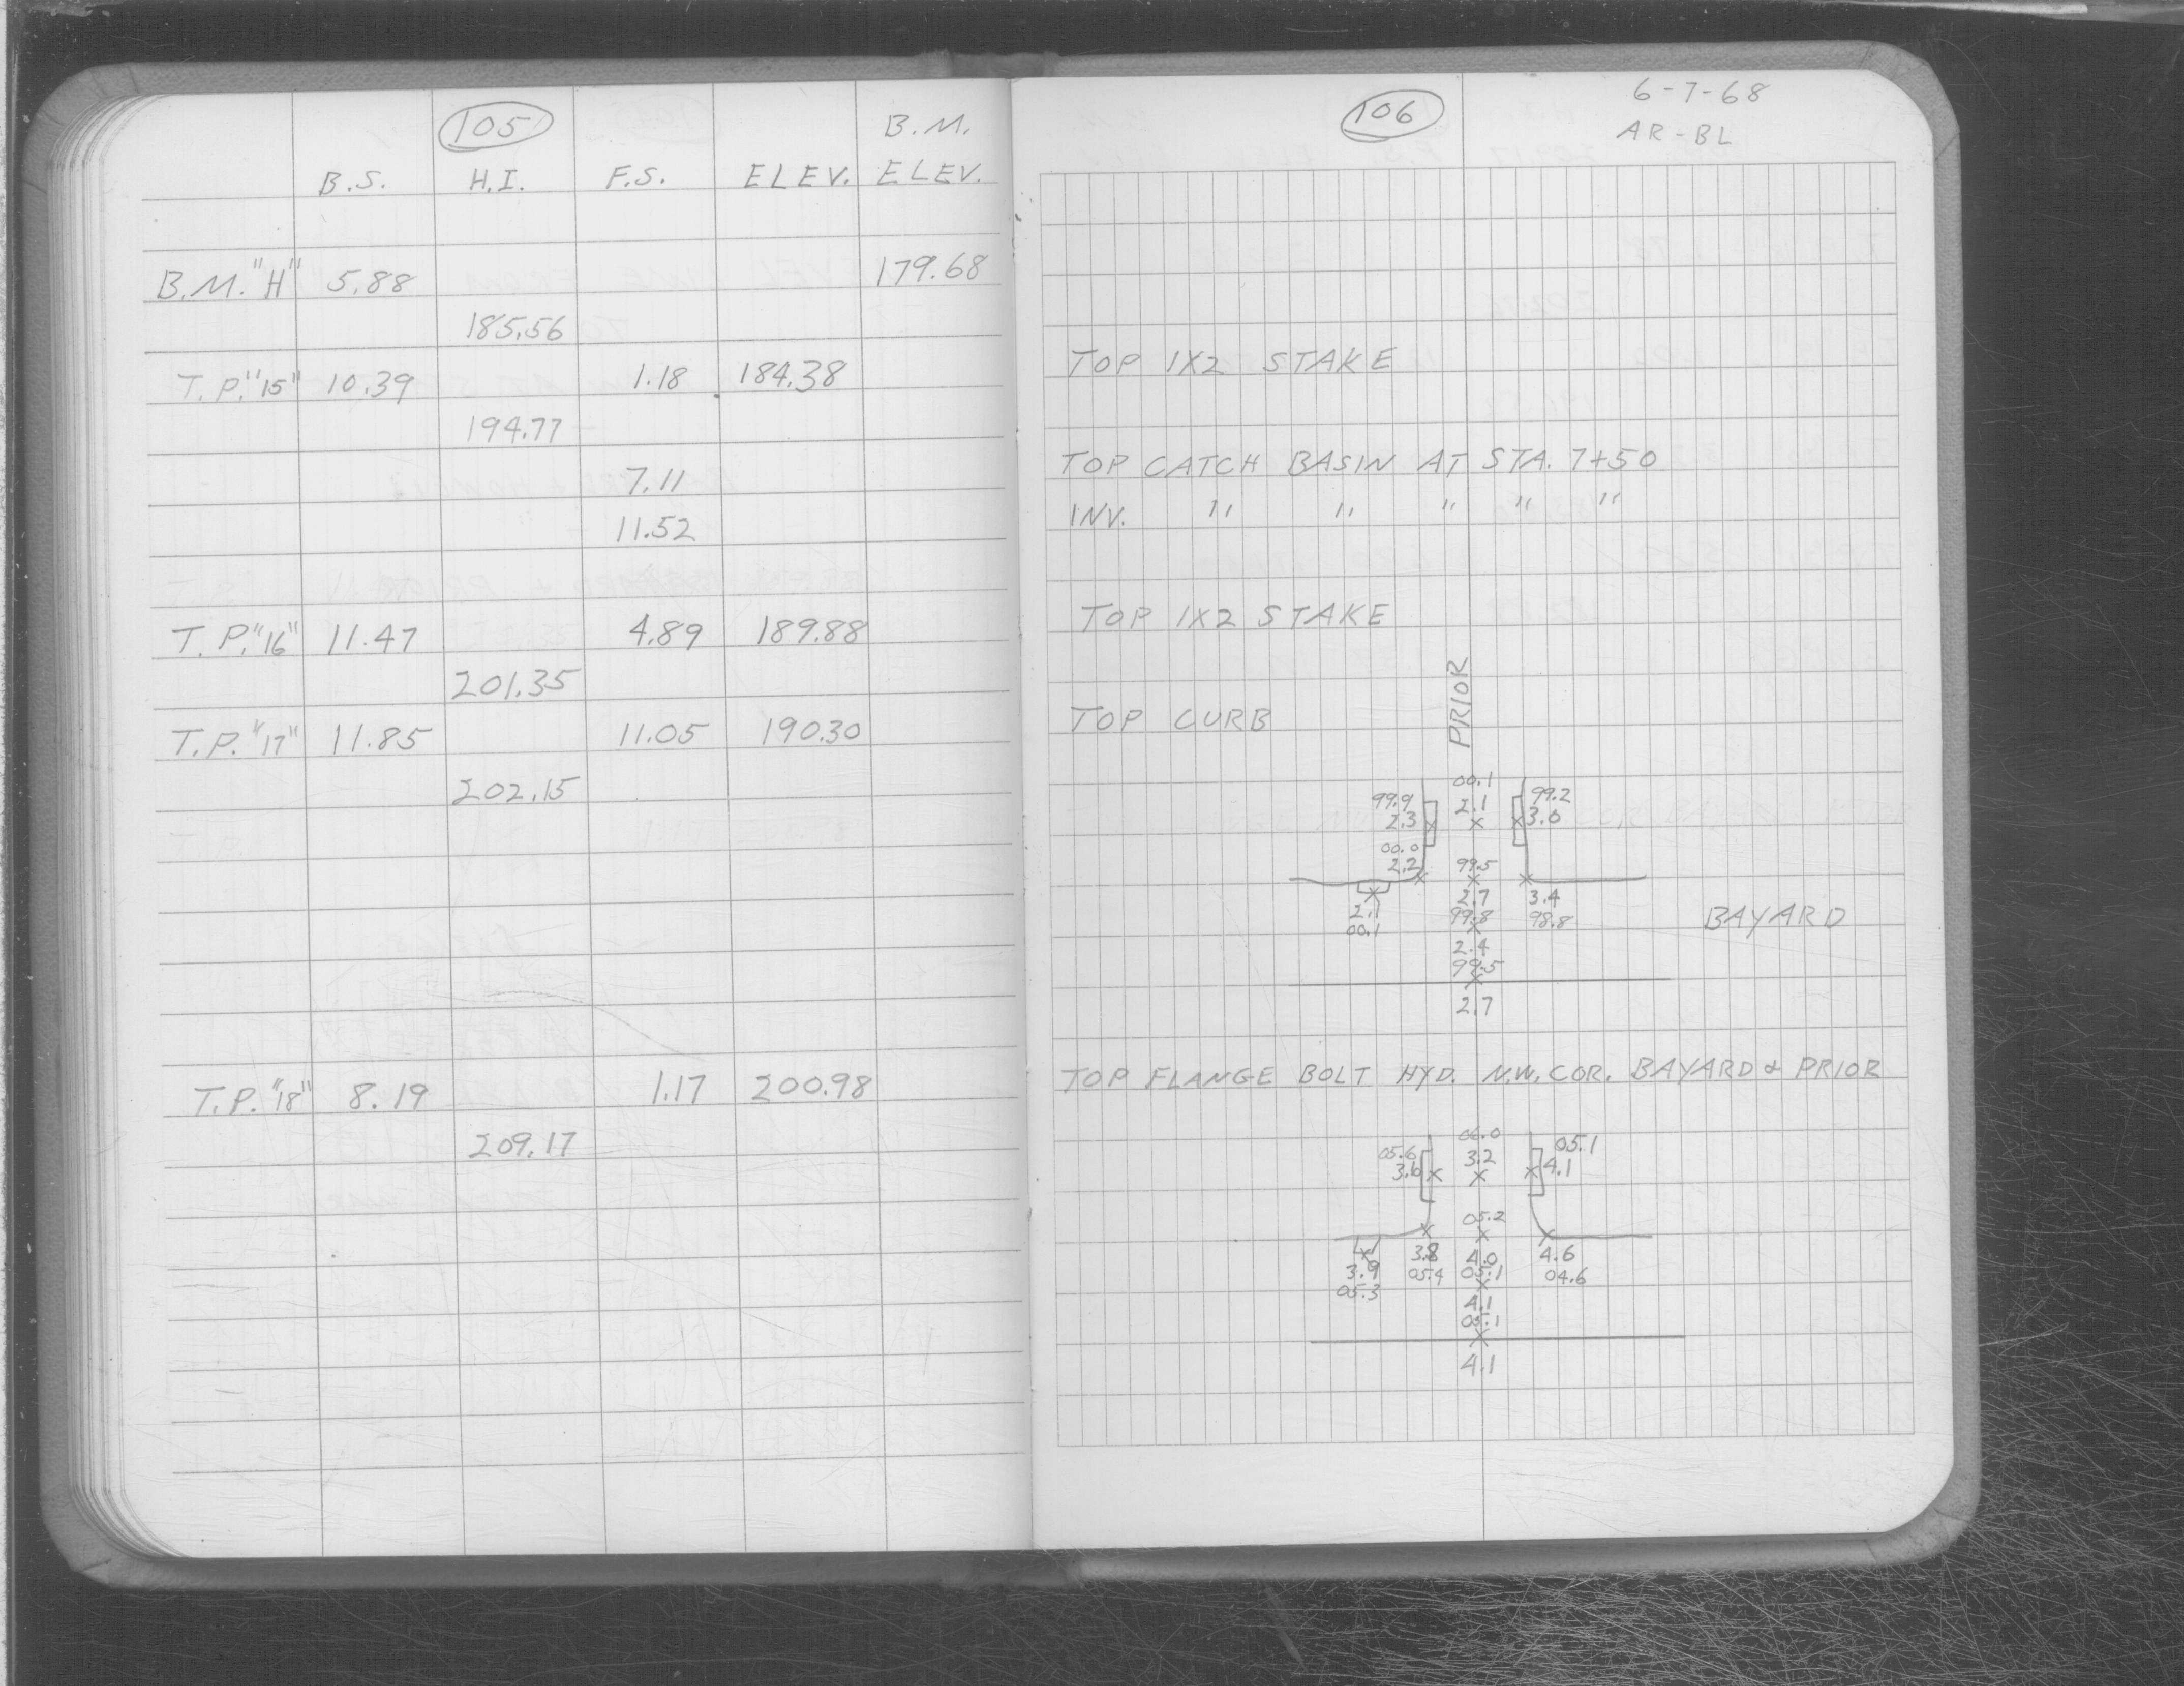 105
B.M.
B.S. H.I. F.S. ELEV. ELEV.
B.M. "H" 5.88 179.68
185.56
T.P. "15" 10.39 1.18 184.38
194.77
7.11
11.52
T.P. "16" 11.47 4.89 189.88
201.35
T.P. "17" 11.85 11.05 190.30
202.15
T.P. "18" 8.19 1.17 200.98
209.17
106
6-7-68
AR-BL
TOP 1X2 STAKE
TOP CATCH BASIN AT STA. 7+50
INV. " " " " "
TOP 1X2 STAKE
PRIOR
TOP CURB
00.1
99.9 2.1 99.2
2.3 3.0
00.0
2.2 99.5
2.7 3.4
2.1 99.8 98.8
00.1
BAYARD
2.4
99.5
2.7
TOP FLANGE BOLT HYD. N.W. COR. BAYARD & PRIOR
06.0
05.6 3.2 05.1
3.6 4.1
05.2
3.8 4.0 4.6
3.9 05.4 05.1 04.6
05.3
4.1
05.1
4.1